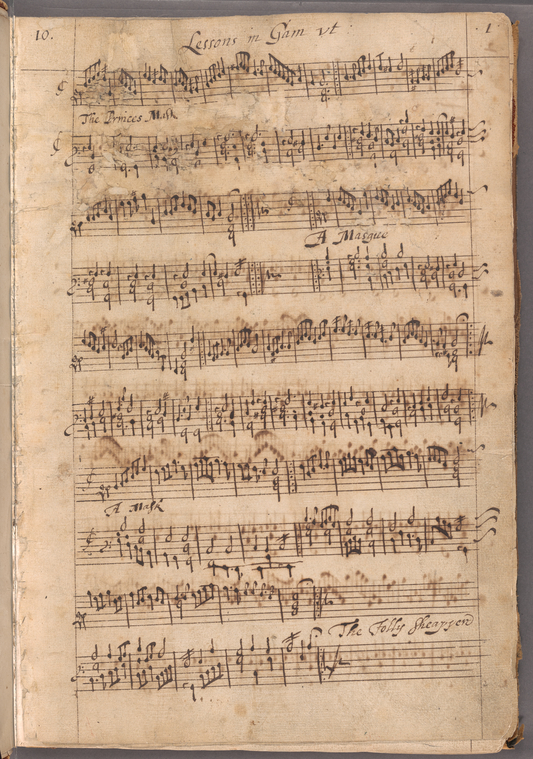 10. Lessons in Gam vt 1
The Princes Mask
A Masque
A Mask
The Jolly Sheapperd